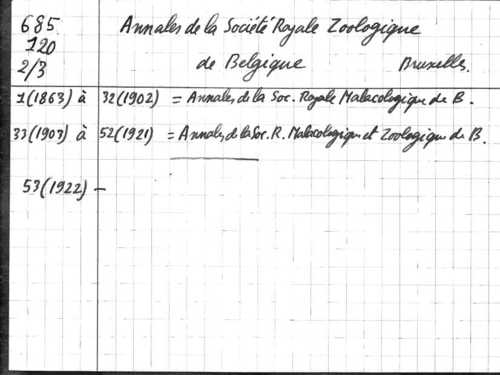 685 Annales de la Société Royale Zoologique
120
2/3 de Belgique Bruxelles.
1(1863) à 32(1902) = Annales de la Soc. Royale Malacologique de B.
33(1903) à 52(1921) = Annales de la Soc. R. Malacologique et Zoologique de B.
53(1922) -